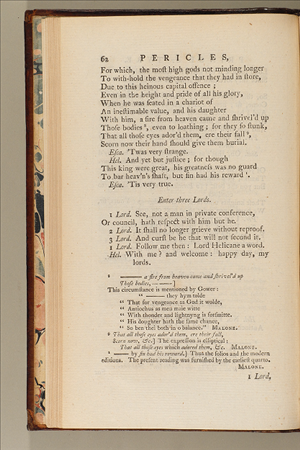 62 PERICLES,
For which, the most high gods not minding longer
To with-hold the vengeance that they had in store,
Due to this heinous capital offence ;
Even in the height and pride of all his glory,
When he was seated in a chariot of
An inestimable value, and his daughter
With him, a fire from heaven came and shrivel'd up
Those bodies, even to loathing ; for they so stunk,
That all those eyes ador'd them, ere their fall,
Scorn now their hand should give them burial.
Esca. 'Twas very strange.
Hel. And yet but justice ; for though
This king were great, his greatness was no guard
To bar heav'n's shaft, but sin had his reward.
Esca. 'Tis very true.
Enter three Lords.
1 Lord. See, not a man in private conference,
Or council, hath respect with him but he.
2 Lord. It shall no longer grieve without reproof.
3 Lord. And curst be he that will not second it.
1 Lord. Follow me then : Lord Helicane a word.
Hel. With me ? and welcome : happy day, my
lords.
— a fire from heaven came and shrivel'd up
Those bodies, — ]
This circumstance is mentioned by Gower :
" — they hym tolde
" That for vengeance as God it wolde,
" Antiochus as men maie witte
" With thonder and lightnyng is forsmitte.
" His doughter hath the same chance,
" So ben thei both in o balance." MALONE.
That all those eyes ador'd them, ere their fall,
Scorn now, &c.] The expression is elliptical :
That all those eyes which adored them, &c. MALONE.
— by sin had his reward.] Thus the folios and the modern
editions. The present reading was furnished by the earliest quarto.
MALONE.
1 Lord,